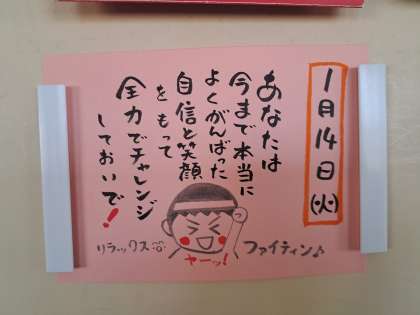 1月14日(火)
あなたは
今まで本当に
よくがんばった
自信と笑顔
をもって
全力でチャレンジ
しておいで!
ファイティン♪
ヤーッ!
リラックス